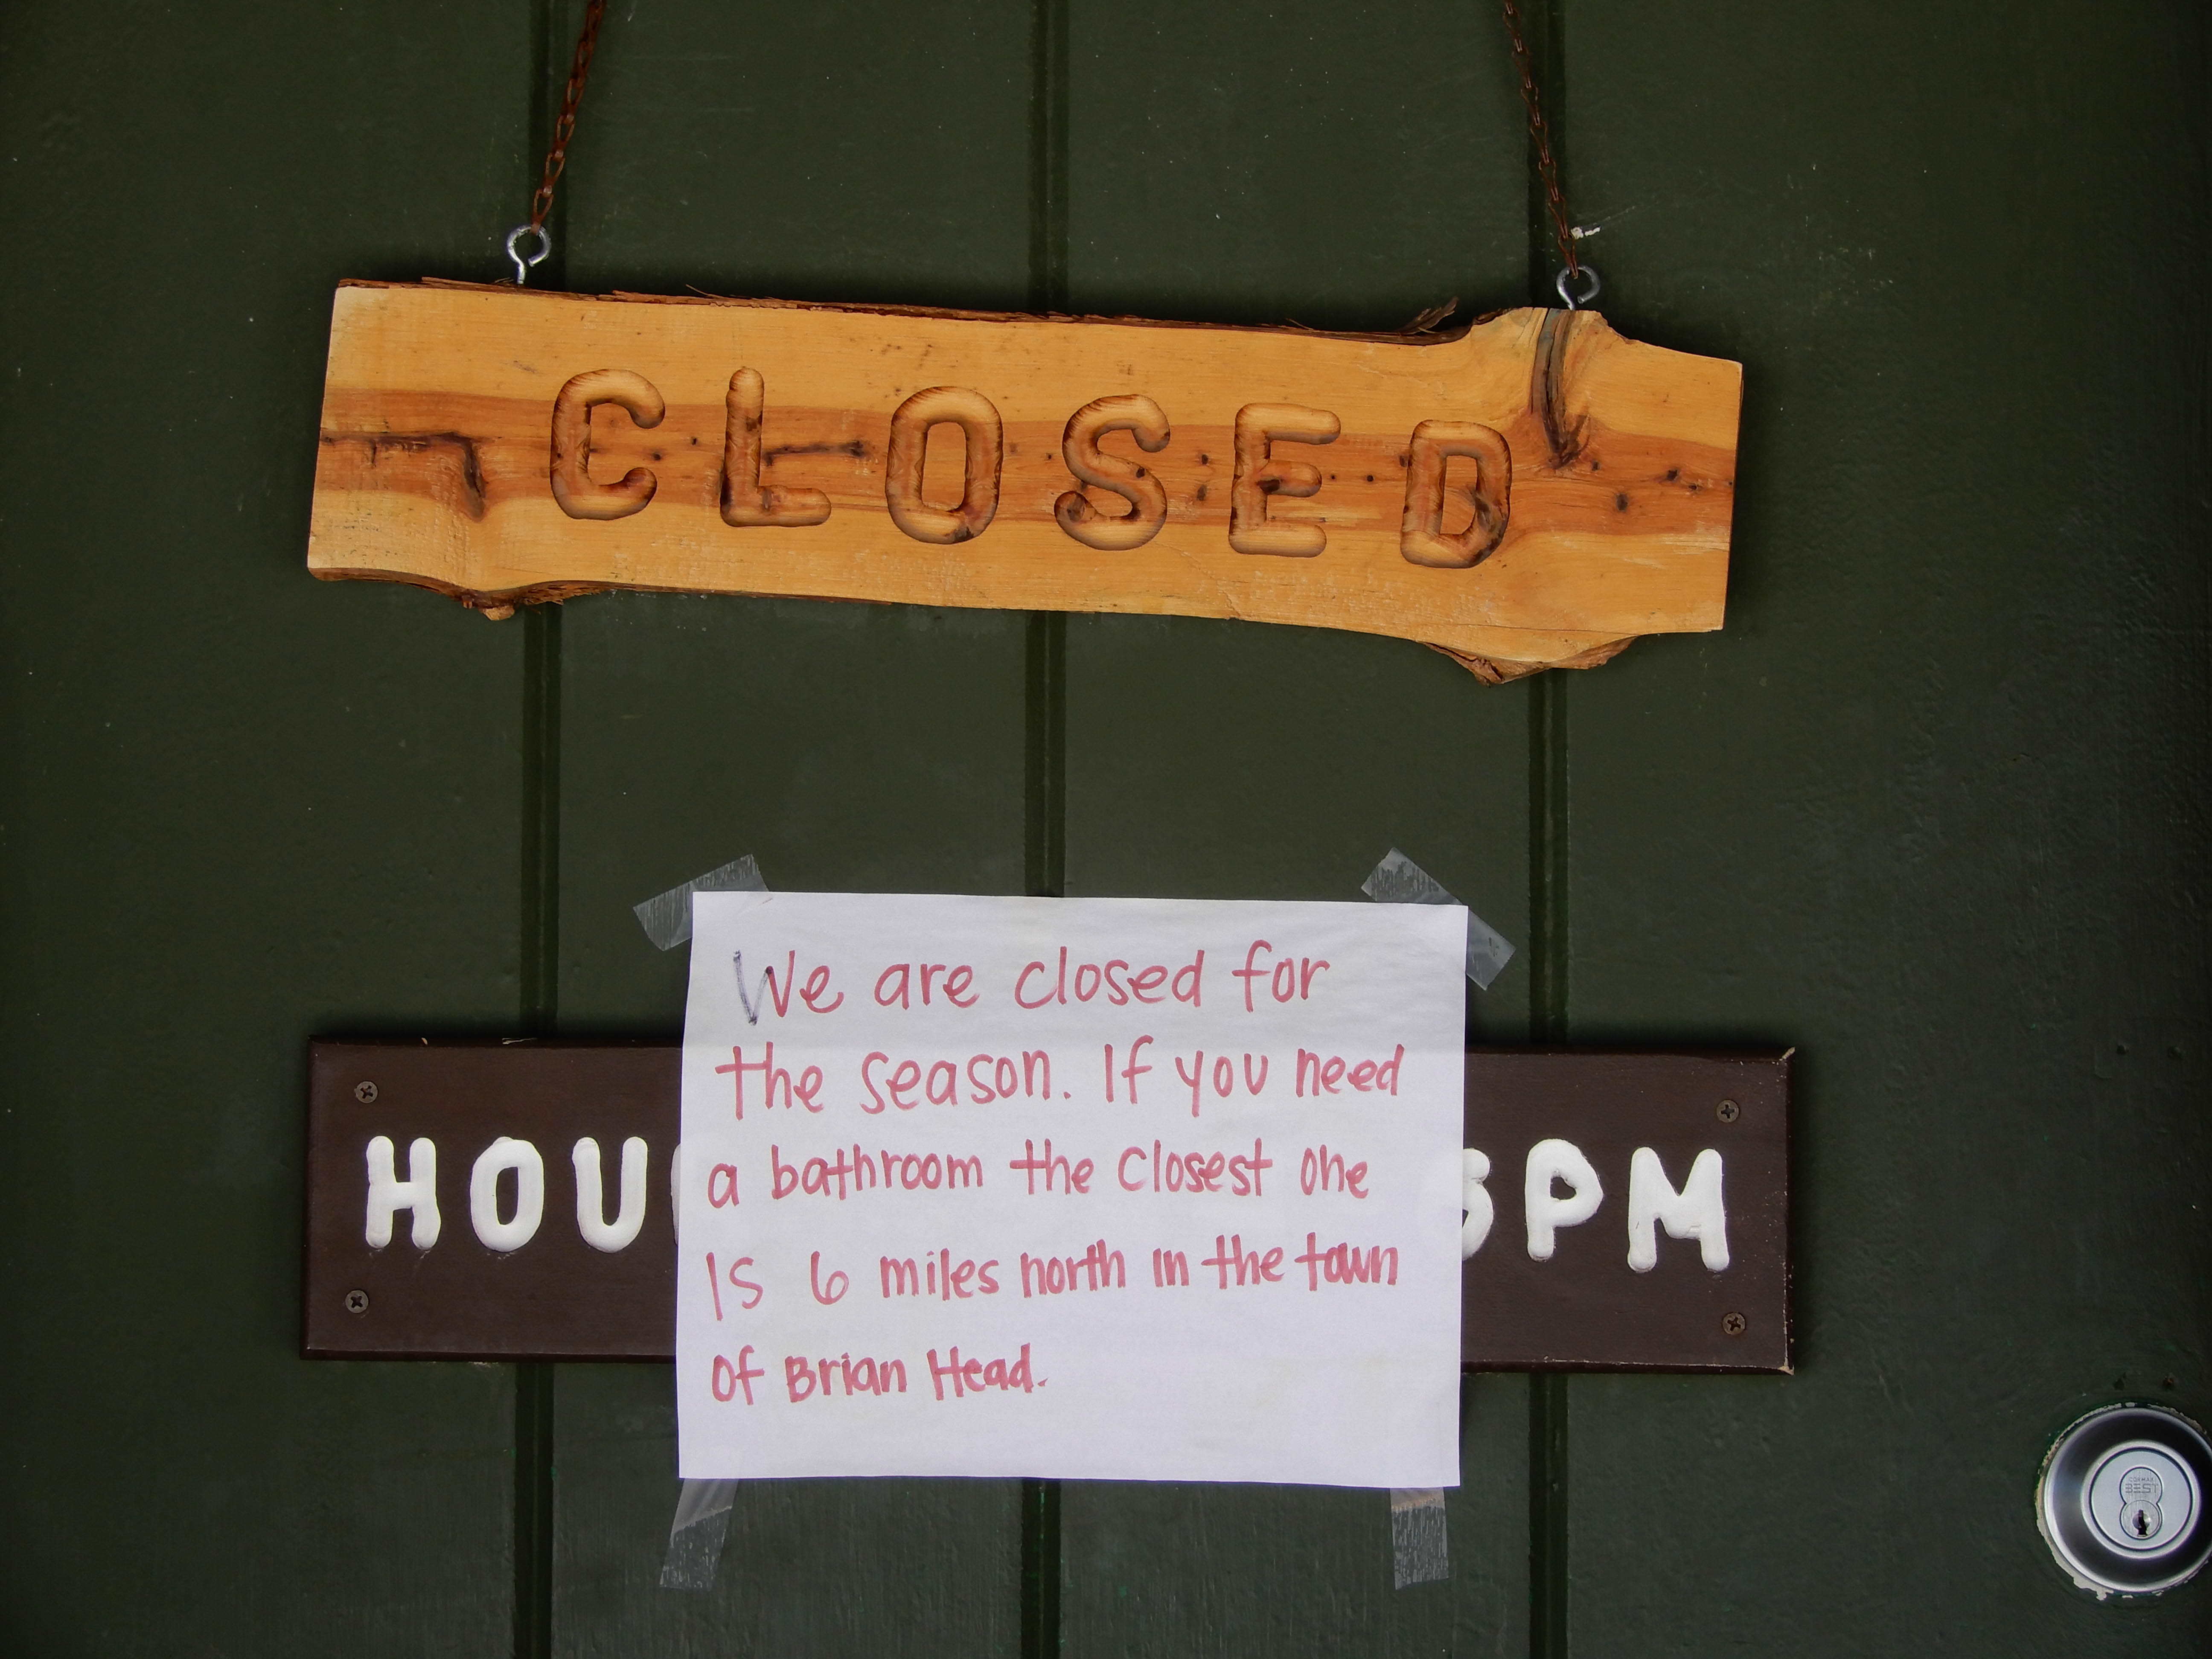 CLOSED
We are closed for
the season. If you need
a bathroom the closest one
Is 6 miles north in the town
of Brian Head.
HOU PM
BEST